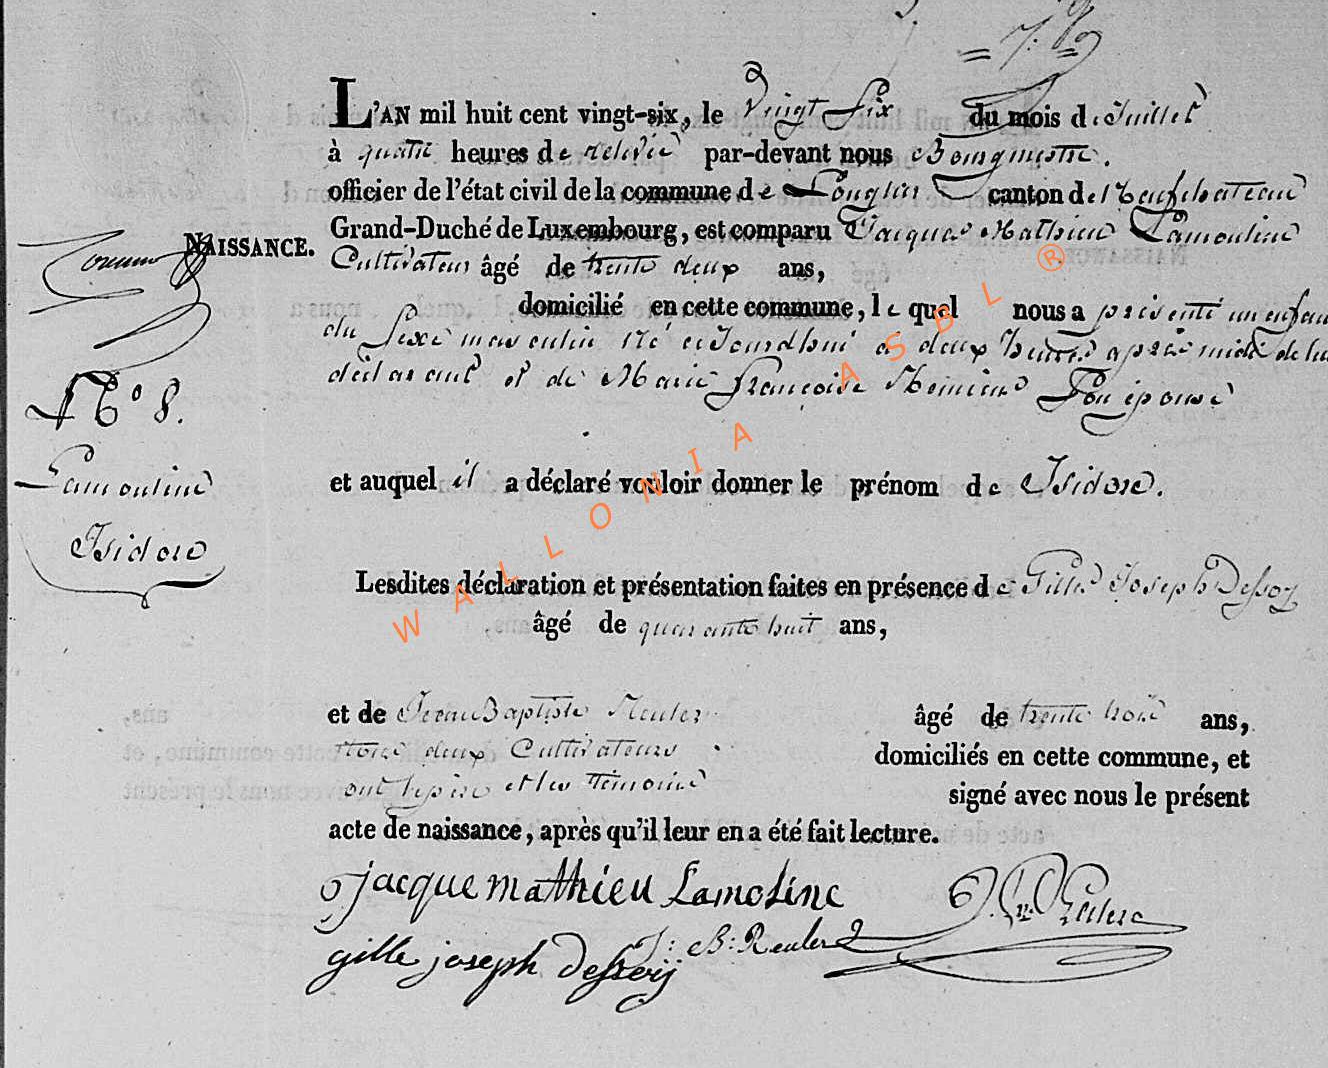 L'AN mil huit cent vingt-six, le Vingt Six du mois de Juillet
à quatre heures de relevée par-devant nous Bourgmestre.
officier de l'état civil de la commune de Longlier canton de Neufchateau
NAISSANCE. Grand-Duché de Luxembourg, est comparu Jacques Mathieu Lamouline
Cultivateur âgé de trente deux ans,
domicilié en cette commune, le quel nous a présenté un enfan
du Sexe masculin né aujourdhui à deux heures après midi de lui
déclarant et de Marie françoise Son épouse
N° 8.
Lamouline
Isidore
et auquel il a déclaré vouloir donner le prénom de Isidore.
Lesdites déclaration et présentation faites en présence de Gille Joseph Dessoy
âgé de quarante huit ans,
et de Jean Baptiste Reuler âgé de trente trois ans,
tous deux Cultivateurs domiciliés en cette commune, et
ont le père et les témoins signé avec nous le présent
acte de naissance, après qu'il leur en a été fait lecture.
jacque mathieu Lamoline
J: B: Reuler
gille joseph Dessoy
WALLONIA ASBL ®